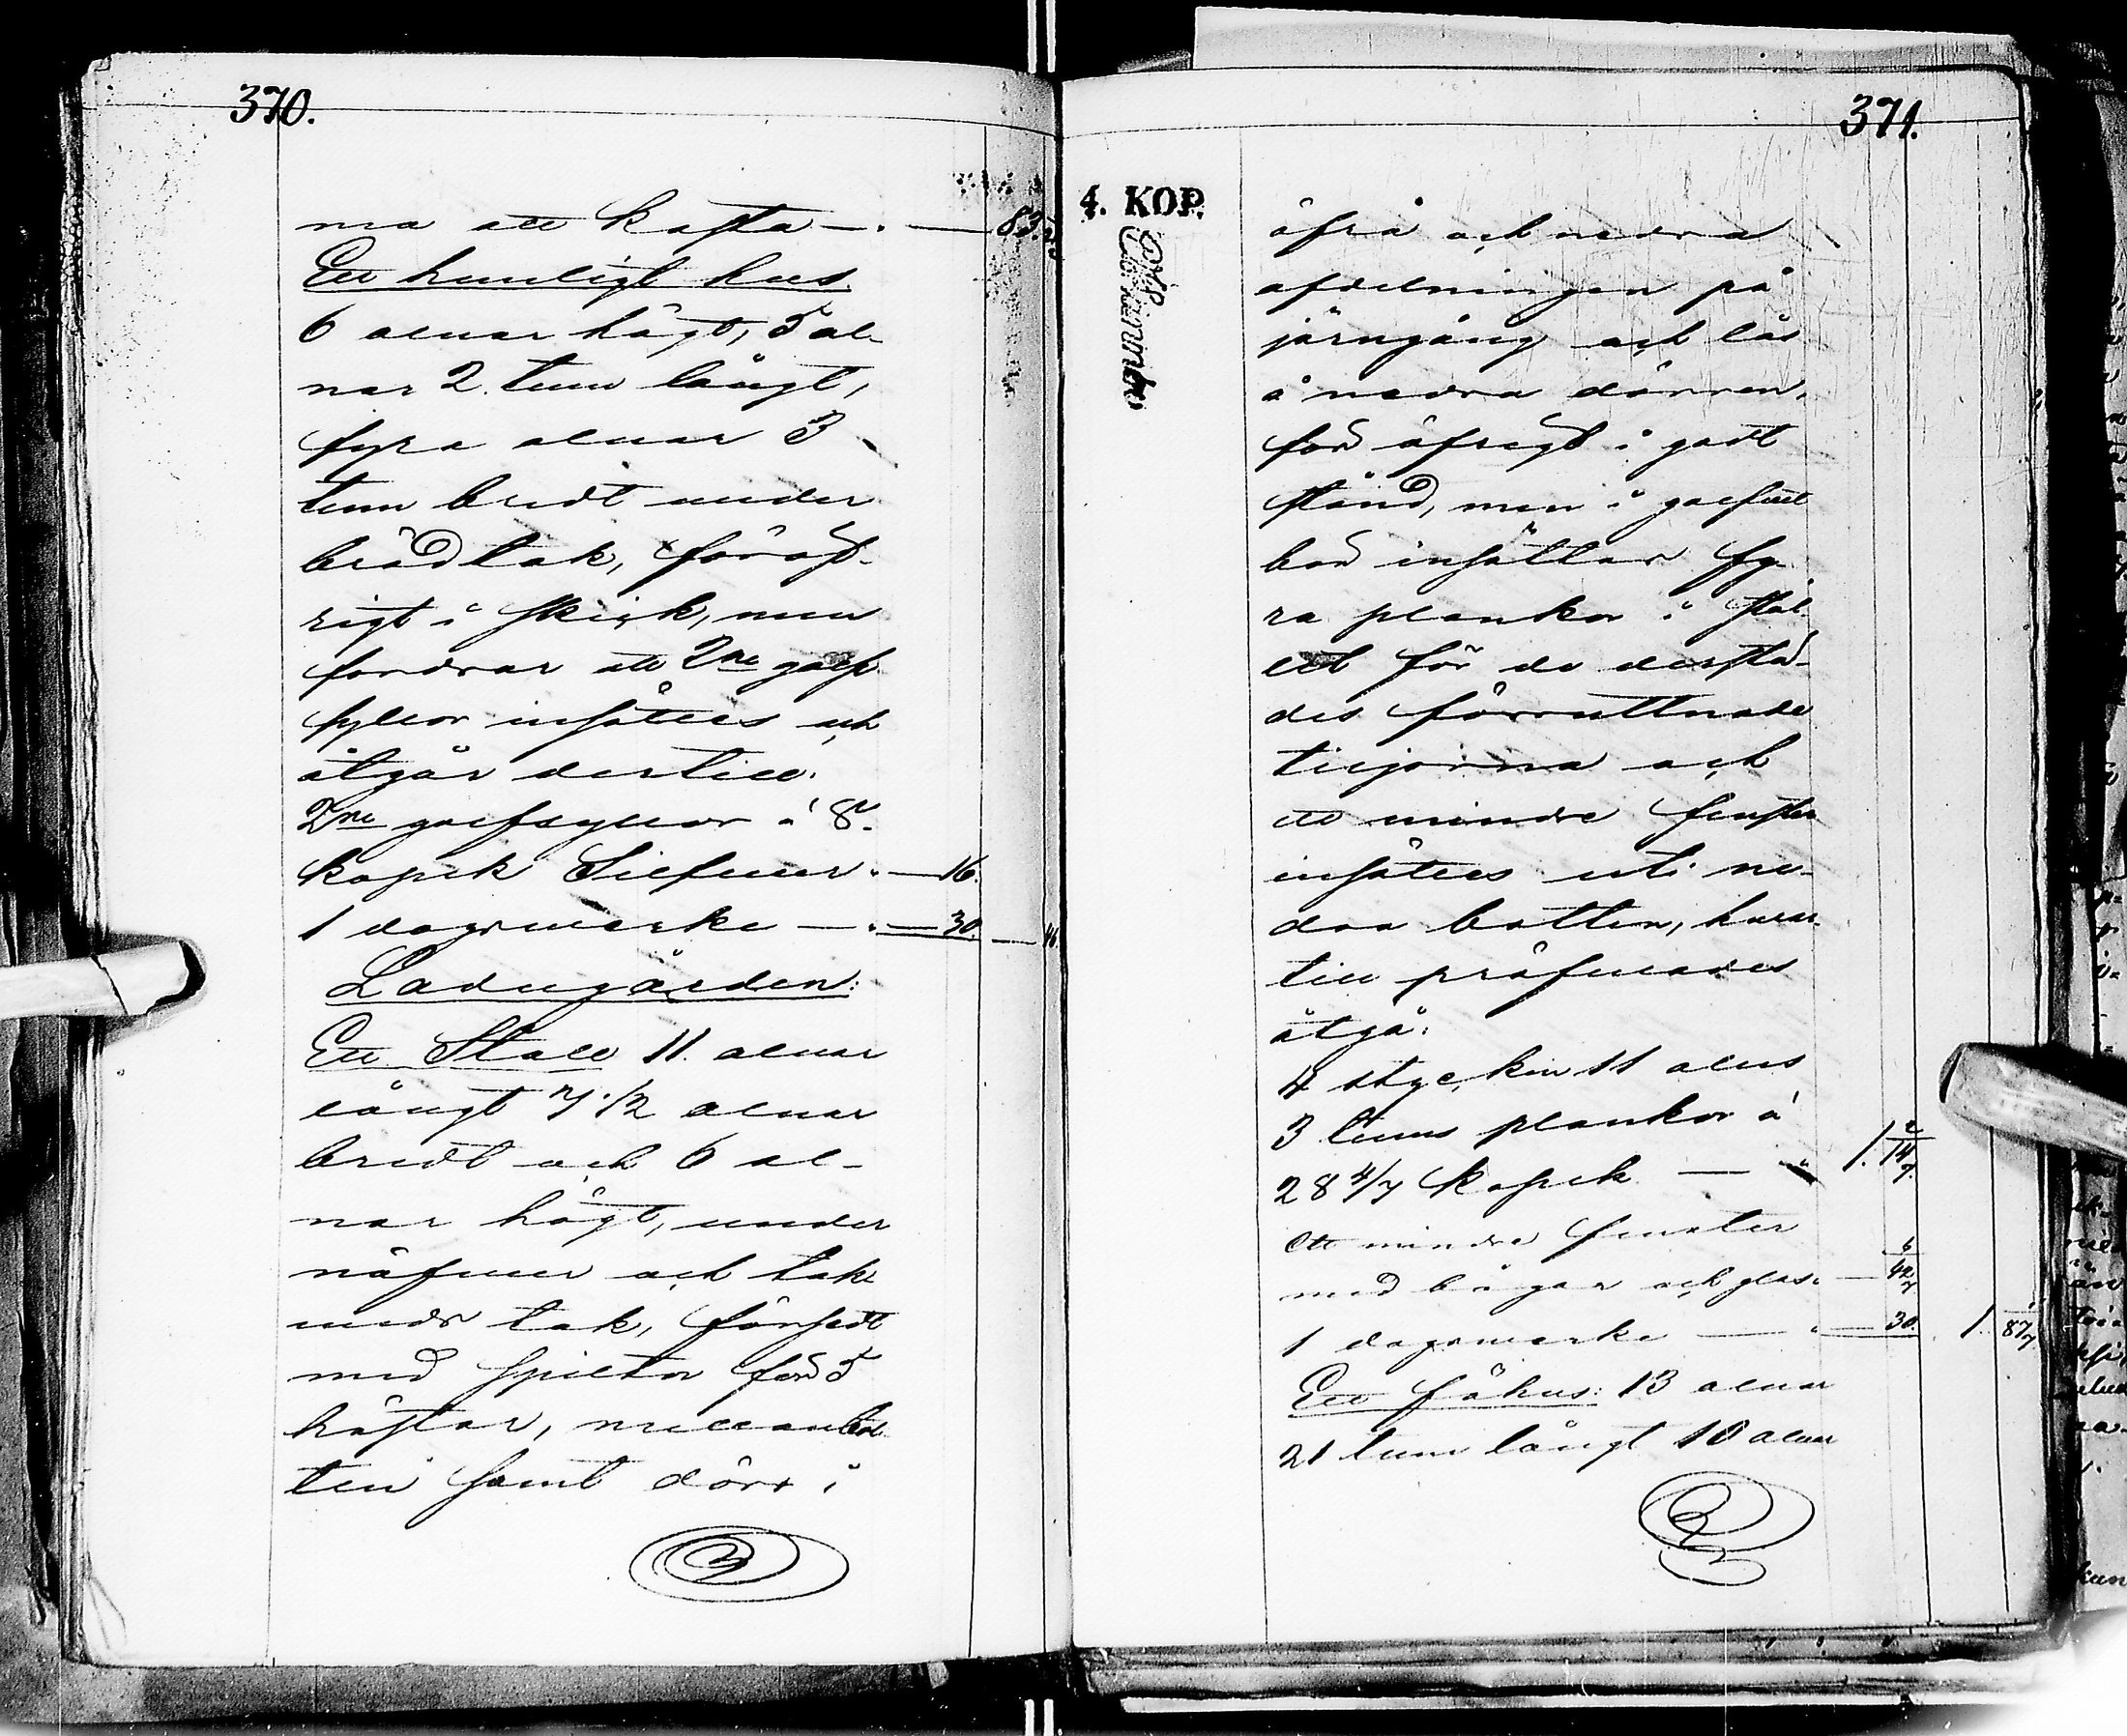 370.
ma att kosta —. — 83.
Ett hemligt hus.
6 alnar högt, 5 al-
nar 2. tum långt,
fyra alnar 3
tum bredt under
brädtak, föröf-
rigt i skick, men
fordrar att 2ne golf-
syllor insättes och
åtgår dertill:
2ne golfsyllor á 8.
kopek Silfver. — 16.
1 dagsverke —. — 30. — 46.
Ladugården:
Ett Stall 11. alnar
långt 7 1/2 alnar
bredt och 6 al-
nar högt, under
näfver och tak
veds tak, försedt
med spiltor för 5
hästar, mellanbot-
ten samt dörr i
371.
4. KOP.
öfra och nedra
afdelningen på
järngång och lås
å nedra dörren,
för öfrigt i godt
stånd, men i golfvet
bör insättas fy-
ra plankor i stäl-
let för de derstä-
des förruttnade
tiljorna och
ett mindre fenster
insättes uti ne-
dra botten, hvar-
till pröfvades
åtgå:
4 stycken 11 alns
3 tums plankor á
28 4/7 kopek — " 1. 14 2/7.
Ett mindre fenster
med bågar och glas. — 42 6/7
1 dagsverke — " — 30. 1. 87 1/7.
Ett fähus: 13 alnar
21 tum långt 10 alnar